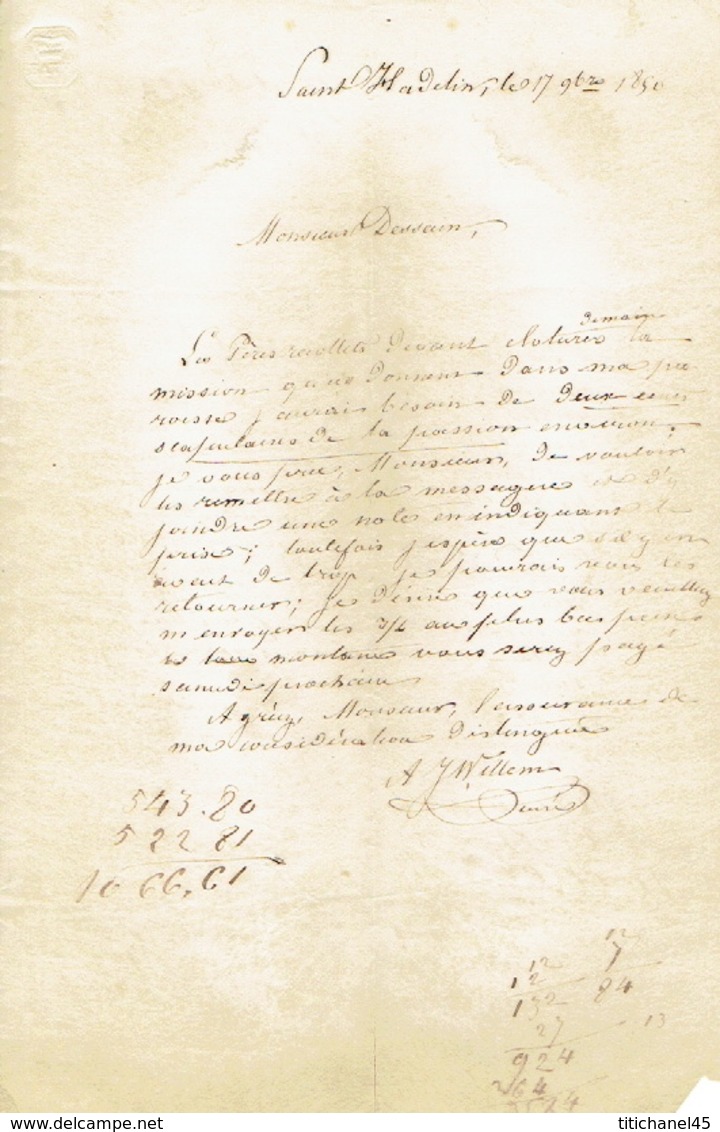 Saint Hadelin, le 17 9bre 1850
Monsieur Dessain,
demain
Les Pères recollets devant cloturer la
mission qu'ils donnent dans ma pa
roisse j'aurai besoin de deux cents
scapulaires de la passion environ.
je vous prie, Monsieur, de vouloir
les remettre à la messagere et d'y
joindre une note en indiquant le
prix; toutefois j'espère que s'il y en
avait de trop je pourrais vous les
retourner; je désire que vous veuillez
m'envoyer les au plus bas prix
montant vous serez payé
samedi prochain
Agréez, Monsieur, l'assurance de
ma considération distinguée
A J Willem
curé
543.80
522 81
10 66,61
12
12 7
12 84
132
27 13
924
264
titichanel45